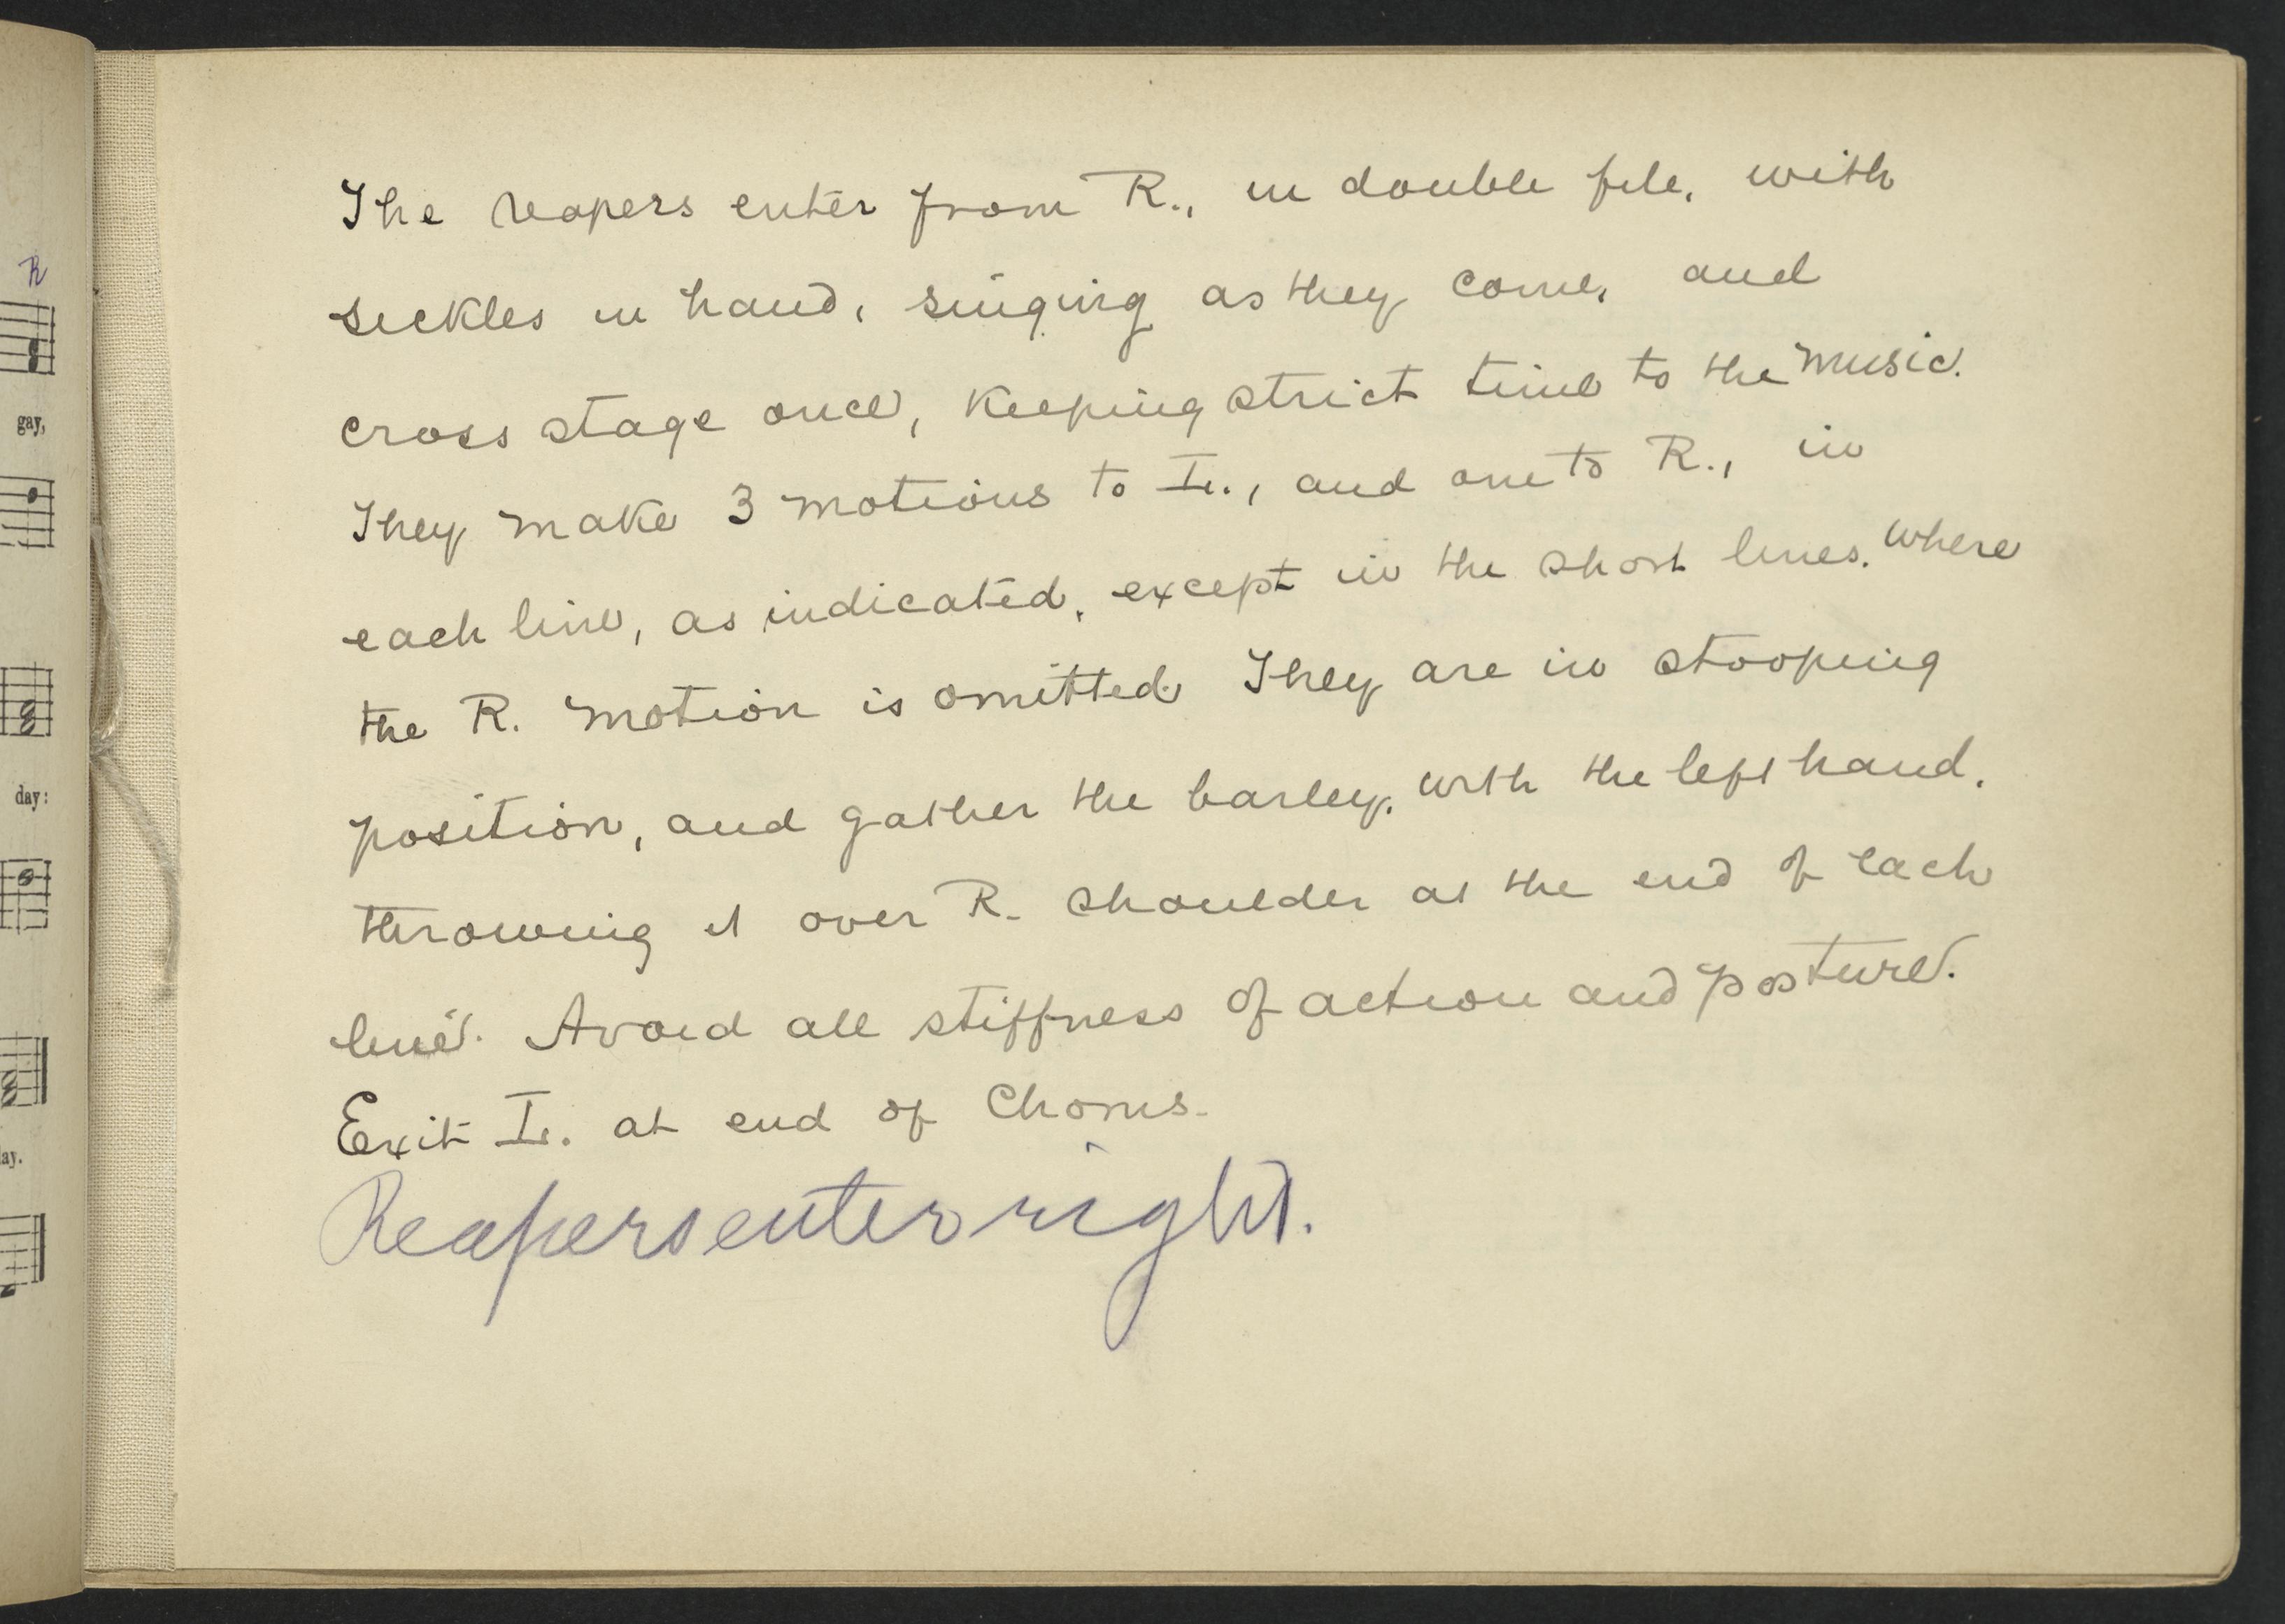 R
gay,
day:
ay.
The reapers enter from R., in double file, with
sickles in hand, singing as they come, and
cross stage once, keeping strict time to the music.
They make 3 motions to L., and one to R., in
each line, as indicated, except in the short lines, where
the R. motion is omitted They are in stooping
position, and gather the barley, with the left hand,
throwing it over R. shoulder at the end of each
line. Avoid all stiffness of action and posture.
Exit L. at end of Chorus.
Reapers enter right.